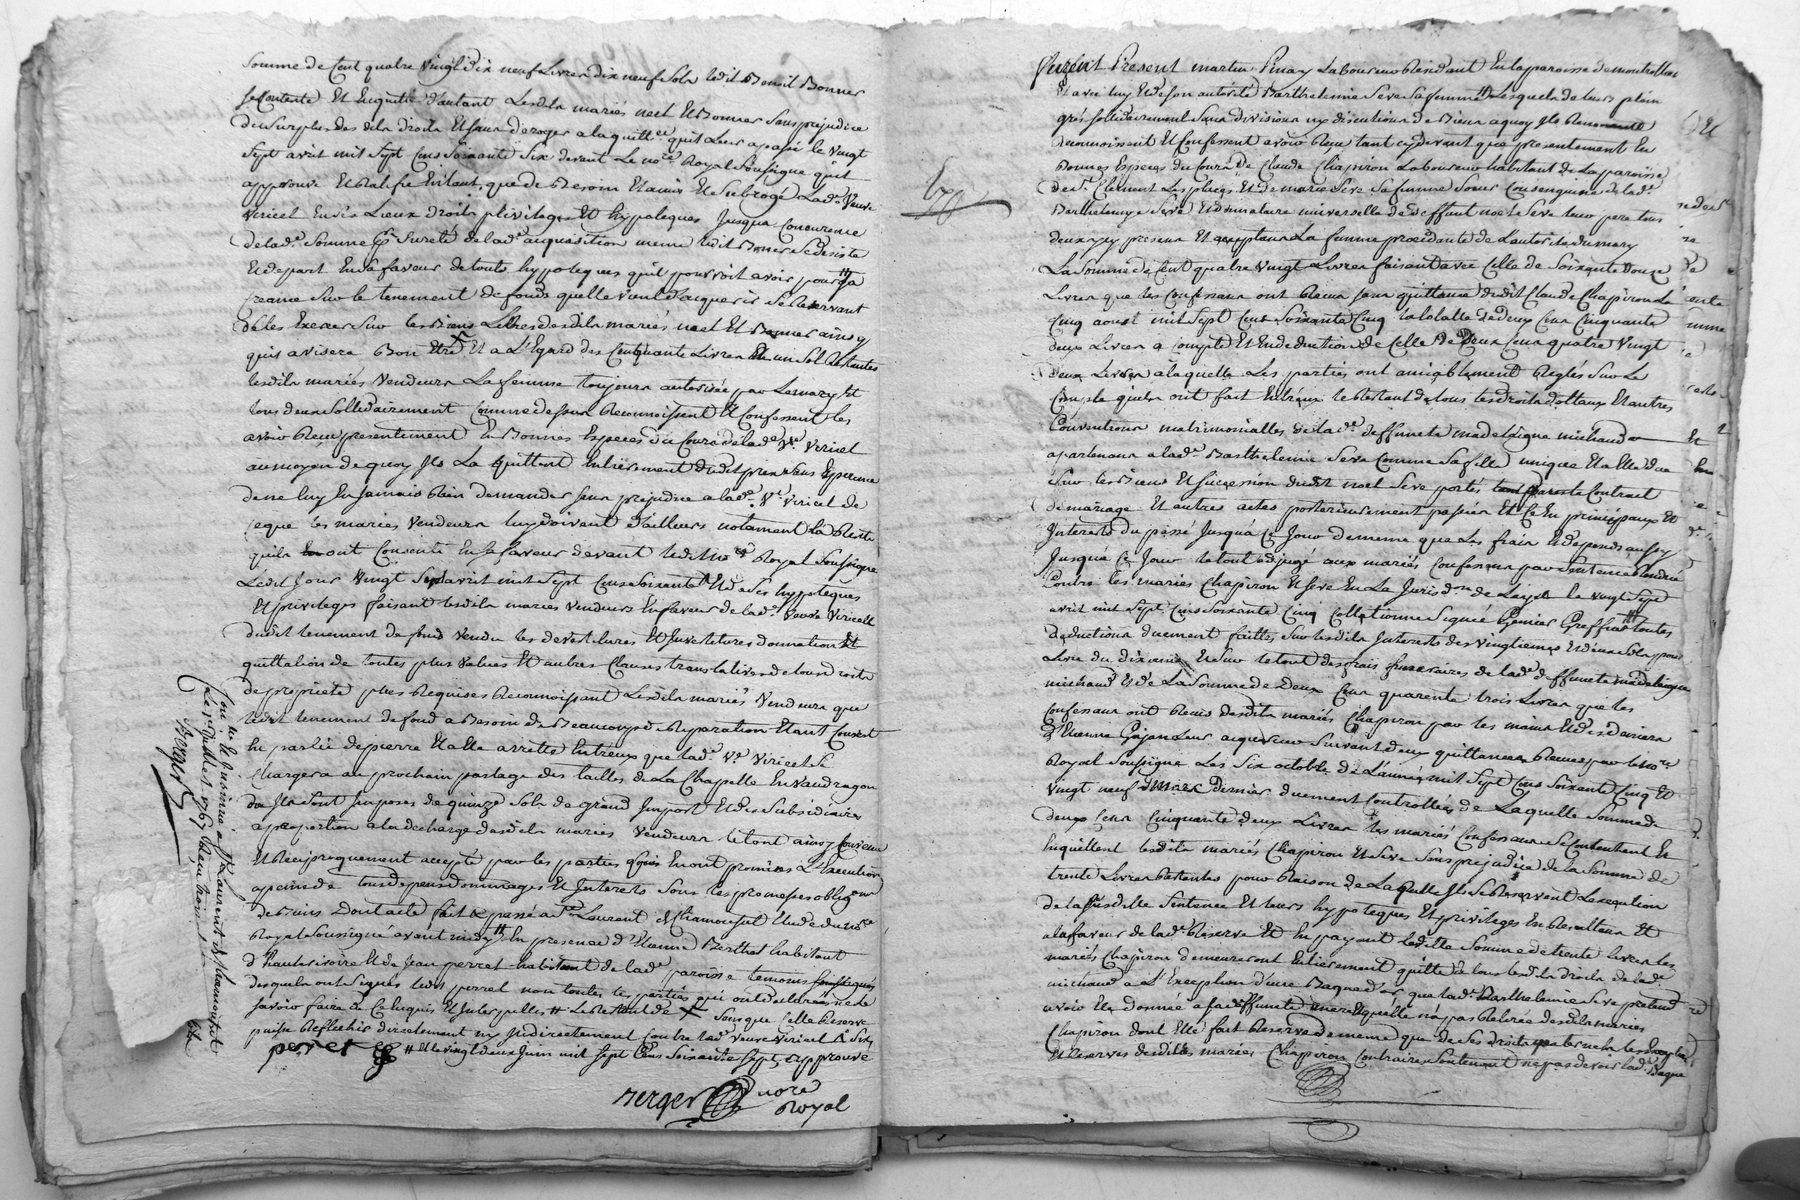 Somme de Cent quatre vingt dix neuf Livres dix neuf Sols ledit Benoit Bonner
se Contente Et En quitte d'autant Lesdits mariés neel Et Bonner Sans prejudice
du Surplus des dits droits Et Sans deroger a la quittce qu'il Leur a passé le vingt
Sept avril mil Sept Cens Soixante Six devant Le nore Royal Soussigné qu'il
approuve Et Ratifie En tant que de Besoin Et a mis Et Subrogé Lade Veuve
Viricel En Ses Lieux droits privileges Et hypoteques Jusqua Concurence
de lade Somme pr Sureté de lade acquisition meme ledit Bonner Se desiste
Et depart En Sa faveur de touts hypoteques quil pourroit avoir pour Sa
Creance Sur le tenement de fonds quelle vient d'acquerir Se Reservant
de les Exercer Sur les Biens Libres desdits mariés neel Et Bonner ainsy
quil avisera Bon Etre Et a L'Egard des Cinquante Livres Et un Sol Restantes
lesdits mariés Vendeurs La femme toujours autorisée par Le mary Et
tous deux Sollidairement Comme dessus Reconnoissent Et Confessent les
avoir Reçu presentement En Bonnes Especes du Cours de lade ve Viricel
au moyen de quoy Ils La quittent Entierement dudit prix Sans Esperance
de ne luy En Jamais Rien demander Sans prejudice a lade Ve Viricel de
ce que les mariés Vendeurs luy doivent d'ailleurs notament La Rente
quils ont Consenti En Sa faveur devant ledit nore Royal Soussigné
Ledit Jour Vingt Sept avril mil Sept Cens Soixante Et de Ses hypoteques
Et privileges faisant lesdits mariés Vendeurs En faveur de lade Veuve Viricel
dudit tenement de fond vendu les devestitures Et Investitures donnation Et
quittation de toutes plus values Et autres Clauses translatives de tous droits
de propriete plus Requises Reconnoissant Lesdits mariés Vendeurs que
ledit tenement de fond a Besoin de Beaucoup de Reparation Etant Couvert
En partie de pierre Et a Ete arretté Entreux que lade Ve Viricel Se
Chargera au prochain partage des tailles de La Chapelle En Vaudragon
ou Ils Sont Imposes de quinze Sols de grand Import Et des Subsidiaires
a proportion a la decharge desdits mariés Vendeurs le tout ainsy Convenu
Et Reciproquement accepté par les parties qui En ont promis L'Execution
a peine de tous depens dommages Et Interets Sous les promesses oblig on
de Biens Dont acte fait & passé a St Laurent de Chamousset Etude du nore
Royal Soussigné avant midy En presence d'Etienne Berthet habitant
d'hauterivoire Et de Jean perret habitant de lade paroisse temoins Soussignés
desquels ont Signés ledit perret non toutes les parties qui ont declaré ne
Savoir faire de Ce Enquis Et Interpellés # Le Restant de X Sans que Cette Reserve
puisse Reflechir directement ny Indirectement Contre lade veuve Viricel A Six
perret # Et le vingt deux Juin mil Sept Cens Soixante Sept, approuvé
Berger nore
Royal
Con. le & Insinué a St Laurent de Chamousset
Le Juillet 1767 Reçu trois
Berger
170
Furent Present martin Pinay Laboureur Resident En la paroisse de montrottier
Et avec luy Et de Son autorité Barthelemie Seve Sa femme Lesquels de leurs plein
gré Sollidairement Sans division ny discution de Biens a quoy Ils Renoncent
Reconnoissent Et Confessent avoir Reçu tant cy devant que presentement En
Bonnes Especes du Cours De Claude Chapiron Laboureur habitant de La paroisse
de St Clément Les places Et de marie Seve Sa femme Soeur Consenguine de lade
Barthelemye Seve Et donnataire universelle de deffunt noel Seve leur pere tous
deux icy presens Et acceptans La femme procedante de L'autorité du mary
La Somme de Cent quatre vingt Livres faisant avec Celle de Soixante Douze
Livres que les Confessans ont Recus Sous quittance dudit Claude Chapiron Le
Cinq aoust mil Sept Cens Soixante Cinq la totalle de deux Cens Cinquante
deux Livres a Compte Et En deduction de Celle De deux Cens quatre Vingt
deux Livres a laquelle Les parties ont amiablement Reglés Sur Le
Compte quils ont fait Entreux le Restant de tous les droits dottaux Et autres
Conventions matrimonialles de lade deffunte madeleigne michaud
apartenans a lade Barthelemie Seve Comme Sa fille unique Et a Elle dus
Sur les Biens Et Succession dudit noel Seve portés par Son Contract
de mariage Et autres actes posterieurement passés Et Ce En principaux Et
Interets du passé Jusqu'a Ce Jour de meme que Les frais Et depends aussy
Jusqua Ce Jour le tout adjugé aux mariés Confessans par Sentence Rendue
Contre les mariés Chapiron Et Seve En La Jurison de Lay le vingt Sept
avril mil Sept Cens Soixante Cinq Collationné Signé Greffier toutes
deductions duement faittes Sur lesdits Interets des vingtiemes Et deux Sols pour
Livre du dixieme Et Sur le tout des frais funeraires de lade deffunte madeleigne
michaud Et de La Somme de Deux Cens quarente trois Livres que les
Confessans ont Reçus desdits mariés Chapiron par les mains Et des deniers
d'Etienne Gujan Leur acquereur Suivant deux quittances Reçues par le nore
Royal Soussigné Les Six octobre de L'année mil Sept Cens Soixante Cinq Et
vingt neuf mars Dernier duement Controllées de Laquelle Somme de
deux Cens Cinquante deux Livres les mariés Confessans Se Contentent Et
En quittent lesdits mariés Chapiron Et Seve Sans prejudice de la Somme de
trente Livres Restantes pour Raison de Laquelle Ils Se Reservent L'execution
de la Susditte Sentence Et leurs hypoteques Et privileges En Resultans Et
a la faveur de lade Reserve Et En payant Laditte Somme de trente Livres les
mariés Chapiron demeureront Entierement quitte de tous lesdits droits de lade
michaud a L'Exception d'une Bague d'or que lade Barthelemie Seve pretend
avoir Ete donnée a Sa deffunte mere Et quelle n'a pas Retirée desdits mariés
Chapiron dont Elle fait Reserve de meme que de Ses droits
Et Reserves desdittes mariés Chapiron Contraires Soutenant ne pas devoir lade Bague